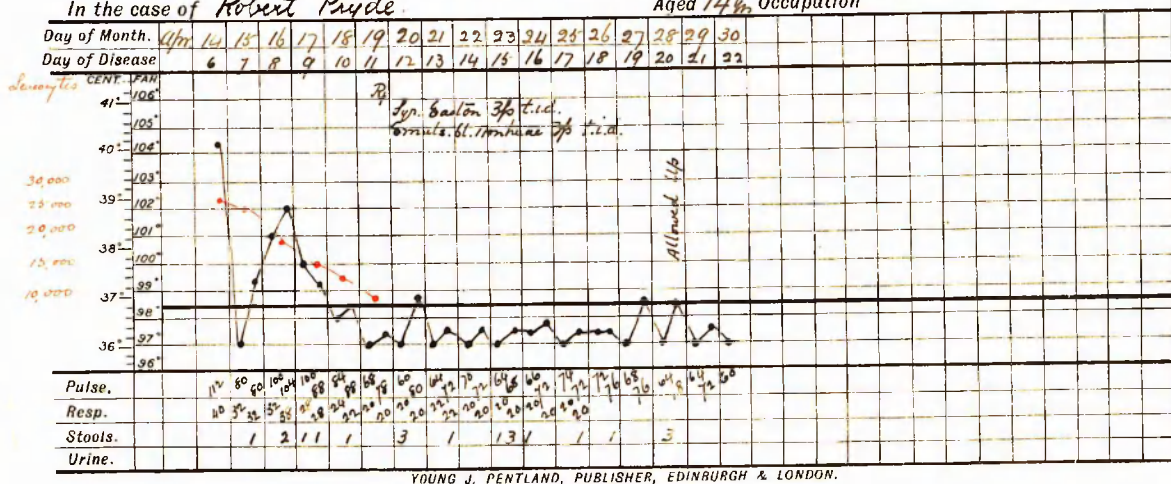 In the case of Robert Pryde. Aged 14 yrs Occupation
Day of Month. Apr 14 15 16 17 18 19 20 21 22 23 24 25 26 27 28 29 30
Day of Disease 6 7 8 9 10 11 12 13 14 15 16 17 18 19 20 21 22
Leucocytes CENT. FAH
41° 106°
105°
40° 104°
30,000 103°
39° 102°
25,000
20,000 101°
38°
15,000 100°
99°
10,000 37°
98°
36° 97°
96°
Rx
Syr. Easton ʒfs t.i.d.
Emuls. Ol. ʒfs t.i.d.
Allowed Up
Pulse. 112 80 80 100 104 100 88 84 88 68 78 60 80 64 72 70 72 64 68 66 72 74 72 72 76 68 76 64 78 64 72 60
Resp. 40 32 32 32 38 28 28 24 22 20 20 20 20 22 22 20 20 20 20 20 20 20 20
Stools. 1 2 1 1 1 3 1 1 3 1 1 1 3
Urine.
YOUNG J. PENTLAND, PUBLISHER, EDINBURGH & LONDON.